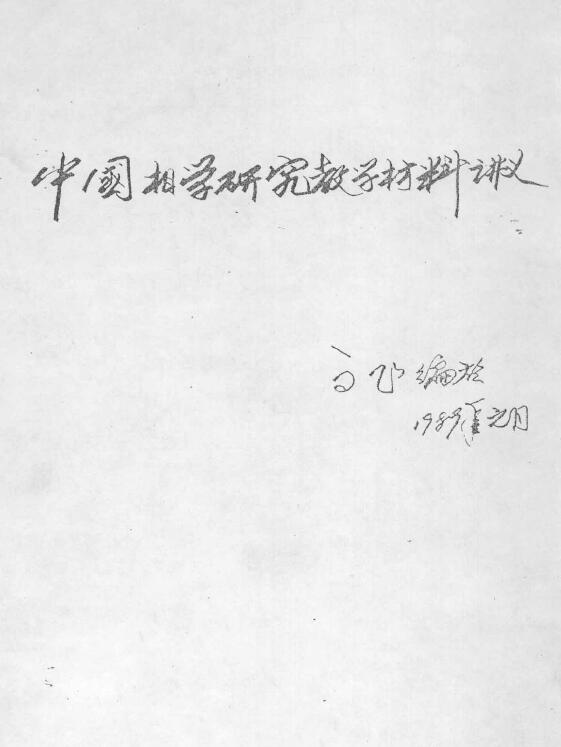 中国相学研究教学材料讲义
飞编于
1989年元月